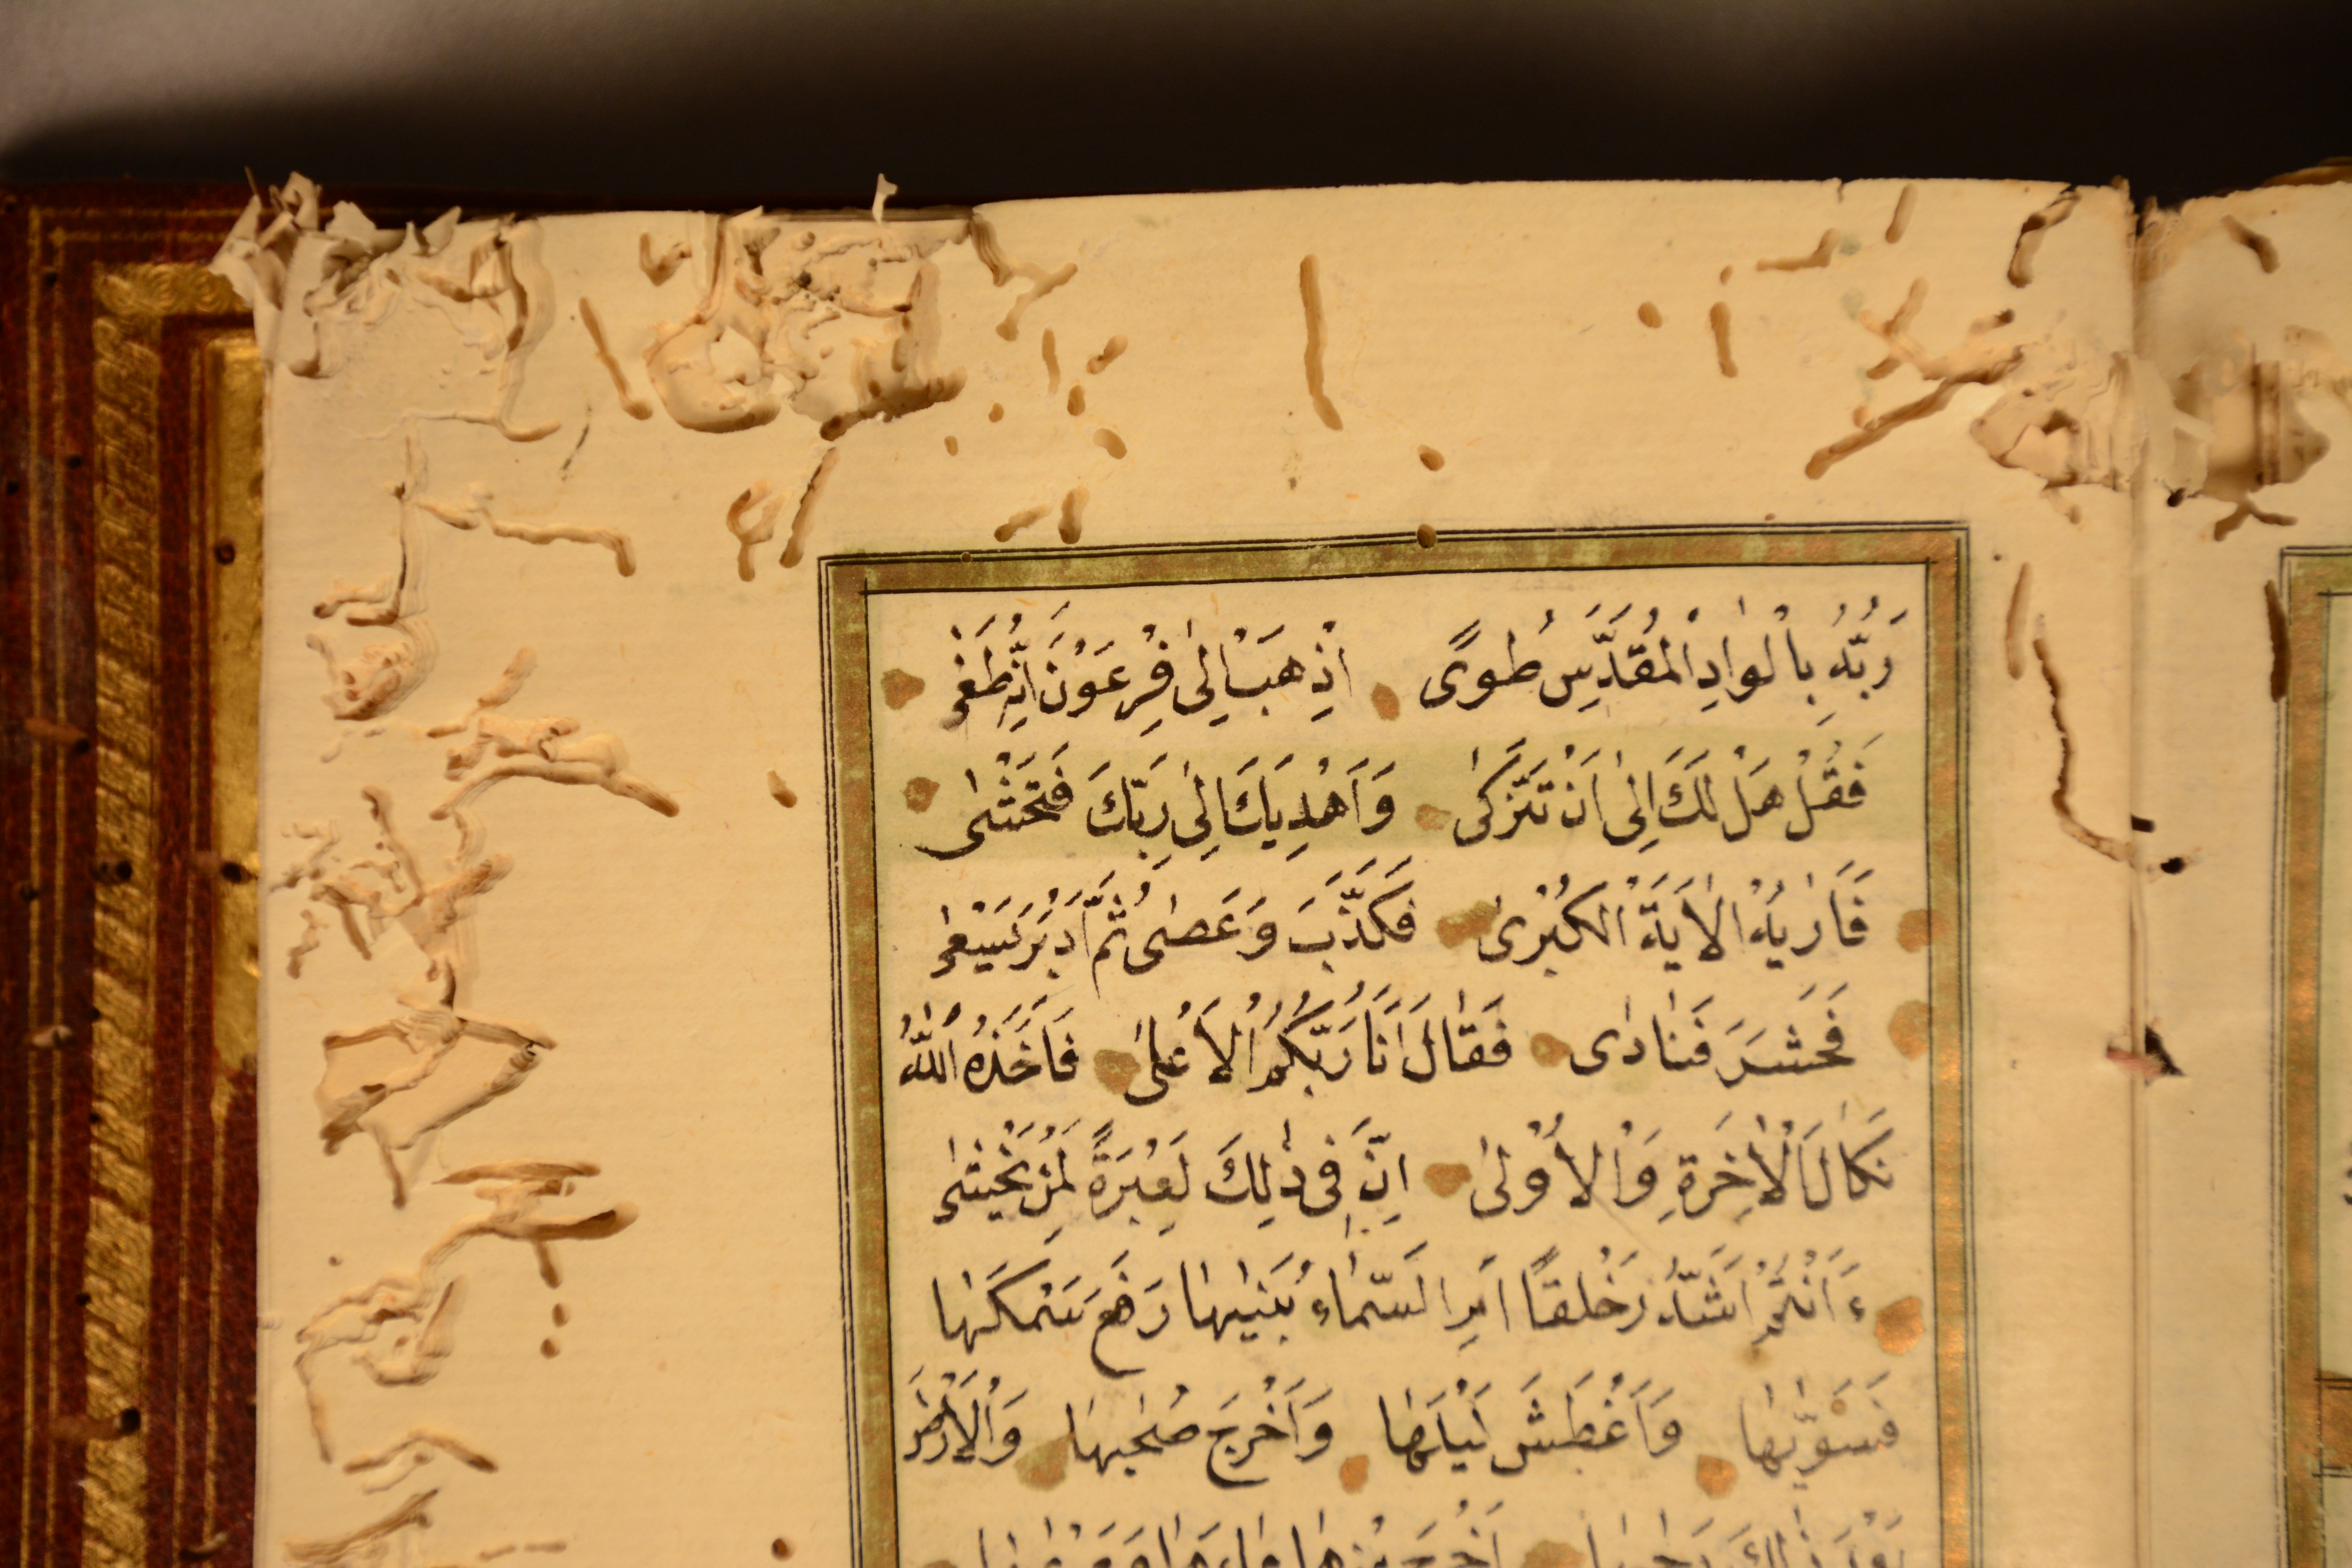 رَبُّهُ بِالْوادِ الْمُقَدَّسِ طُوًى اِذْهَبْ اِلىٰ فِرْعَوْنَ اِنَّهُ طَغٰى
فَقُلْ هَلْ لَكَ اِلىٰ اَنْ تَزَكّٰى وَاَهْدِيَكَ اِلىٰ رَبِّكَ فَتَخْشٰى
فَاَرٰيهُ الْاٰيَةَ الْكُبْرىٰ فَكَذَّبَ وَعَصٰى ثُمَّ اَدْبَرَ يَسْعٰى
فَحَشَرَ فَنادٰى فَقالَ اَنَا رَبُّكُمُ الْاَعْلىٰ فَاَخَذَهُ اللّٰهُ
نَكالَ الْاٰخِرَةِ وَالْاُوْلىٰ اِنَّ فىٖ ذٰلِكَ لَعِبْرَةً لِمَنْ يَخْشٰى
ءَاَنْتُمْ اَشَدُّ خَلْقًا اَمِ السَّمٰاءُ بَنٰيهٰا رَفَعَ سَمْكَهٰا
فَسَوّٰيهٰا وَاَغْطَشَ لَيْلَهٰا وَاَخْرَجَ ضُحٰيهٰا وَالْاَرْضَ